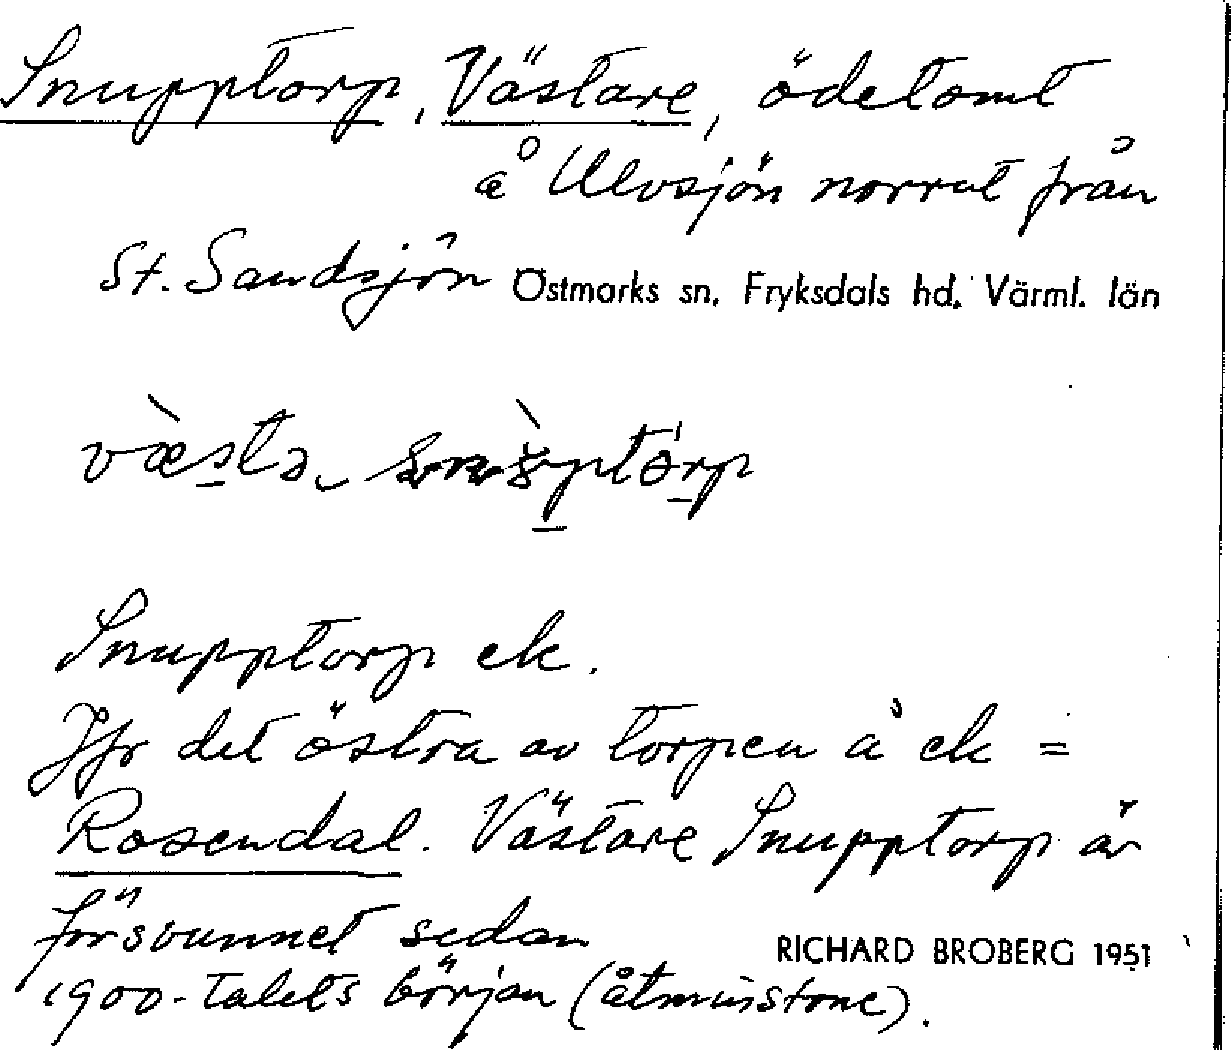 Snupptorp, Västare, ödetomt
å Ulvsjön norrut från
St. Sandsjön Östmarks sn. Fryksdals hd. Värml. län
væstə
Snupptorp ek.
Jfr det östra av torpen å ek =
Rosendal. Västare Snupptorp är
försvunnet sedan
RICHARD BROBERG 1951
1900-talets början (åtminstone).